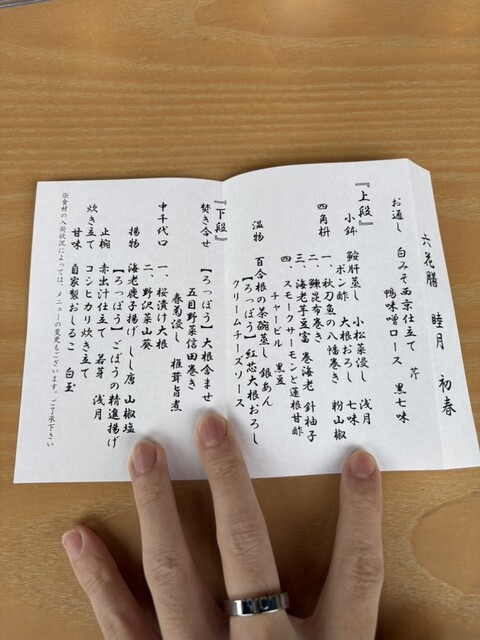 六花膳 睦月 初春
お通し 白みそ西京仕立て 芹 黒七味
鴨味噌ロース
『上段』
小鉢 鮟肝蒸し 小松菜浸し 浅月
ポン酢 大根おろし 七味
四角枡 一、秋刀魚の八幡巻き 粉山椒
二、鰊昆布巻き
三、海老芋豆富 巻海老 針柚子
四、スモークサーモンと蓮根甘酢
チャービル 黒豆
温物 百合根の茶碗蒸し 銀あん
【ろっぽう】紅芯大根おろし
クリームチーズソース
『下段』
焚き合せ 【ろっぽう】大根含ませ
五目野菜信田巻き
春菊浸し 椎茸旨煮
中千代口 一、桜漬け大根
二、野沢菜山葵
揚物 海老鹿子揚げ しし唐 山椒塩
【ろっぽう】ごぼうの精進揚げ
止椀 赤出汁仕立て 若芽 浅月
炊き立て コシヒカリ炊き立て
甘味 自家製おしるこ 白玉
※食材の入荷状況によっては、メニューの変更もございます。ご了承下さい